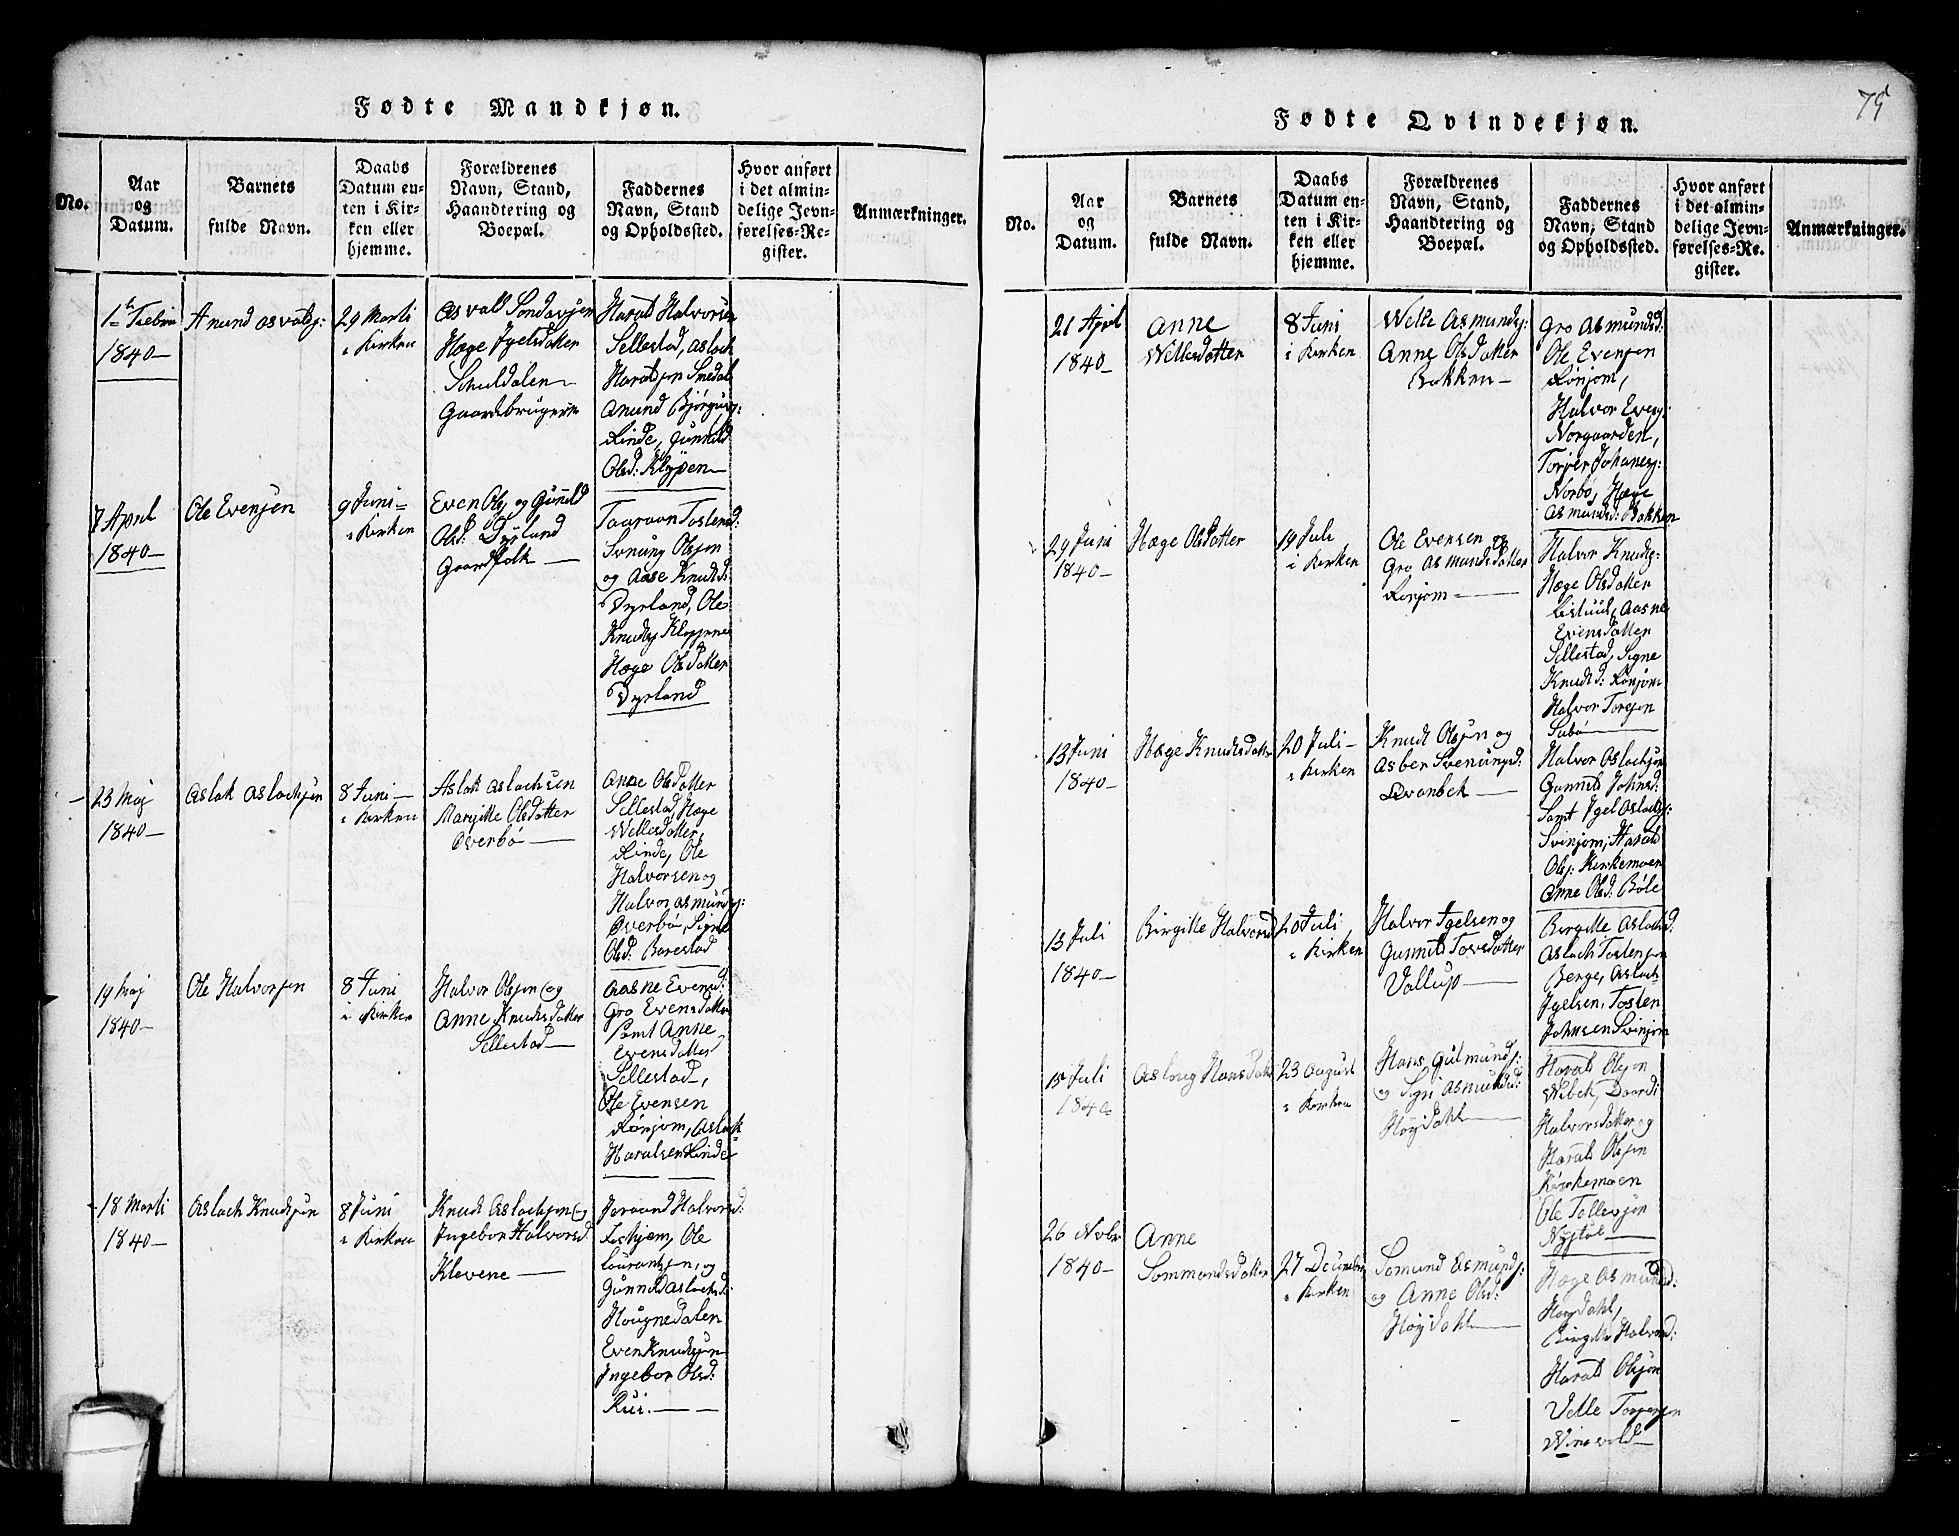 Fødte Mandkjøn.
No.
Aar
og
Datum.
Barnets
fulde Navn.
Daabs
Datum en-
ten i Kir-
ken eller
hjemme.
Forældrenes
Navn, Stand,
Haandtering og
Boepæl.
Faddernes
Navn, Stand
og Opholdssted.
Hvor anført
i det almin-
delige Jevn-
førelses-Re-
gister.
Anmærkninger.
1840
Anund Asvalds:
29 Marti
i Kirken
Asvald Sondresen
Hæge Igelsdatter
Schuldalen
Gaardebrugere
Harald Halvorsen
Sellestad, Aslack
Haraldsen Smedal
Anund Bjørguf:
Rinde, Gunnild
Olsd: Klypen
7 April
1840
Ole Evensen
9 Juni
i Kirken
Even Ols: og Gunild
Olsd: Dyrland
Gaardfolk
Taaraan Tostensd:
Svnung Olsen
og Aase Knudsd:
Dyrland, Ole
Knuds: Klypene
Hæge Olsdatter
Dyrland
23 Maj
1840
Aslak Aslachsen
8 Juni
i Kirken
Aslak Aslachsen
Margitte Olsdatter
Overbø
Anne Olsdatter
Sellestad, Hæge
Wellesdatter,
Rinde, Ole
Halvorsen og
Halvor Asmunds:
Overbø, Signe
Olsd: Barestad
19 Maj
1840
Ole Halvorsen
8 Juni
i Kirken
Halvor Olsen og
Anne Knudsdatter
Sellestad
Aasne Evensd:
Gro Evensdatter
samt Anne
Evensdatter
Sellestad,
Ole Evensen
Rønjom, Aslack
Haralsen Rinde
18 Marti
1840
Aslach Knudsen
8 Juni
i Kirken
Knud Aslachsen og
Ingebor Halvorsd:
Klevene
Joraand Halvorsd:
Leshjem, Ole
Lourantsen, og
Gunnild Aslachsd:
Hougnedalen
Even Knudsen
Ingebor Olsd:
Rui.
Fødte Qvindekjøn.
75
No.
Aar
og
Datum.
Barnets
fulde Navn.
Daabs
Datum en-
ten i Kir-
ken eller
hjemme.
Forældrenes
Navn, Stand,
Haandtering og
Boepæl.
Faddernes
Navn, Stand
og Opholdssted.
Hvor anført
i det almin-
delige Jevn-
førelses-Re-
gister.
Anmærkninger.
21 April
1840
Anne
Wellesdatter
8 Juni
i Kirken
Welle Asmunds:
Anne Olsdatter
Bakken
Gro Asmundsd:
Ole Evensen
Rønjom,
Halvor Evens:
Norgaarden,
Torjer Johanes:
Norbø, Hæge
Asmundsd: Bakken
29 Juni
1840
Hæge Olsdatter
19 Juli
i Kirken
Ole Evensen og
Gro Asmundsdatter
Rønjom
Halvor Knuds:
Hæge Olsdatter
Listuul, Aasne
Evensdatter
Sellestad, Signe
Knudsd: Rønjom
Halvor Torsen
Subø
13 Juni
1840
Hæge Knudsdatter
20 Juli
i Kirken
Knud Olsen og
Asber Svenungsd:
Qvanbek
Halvor Aslachsen
Gunnild Johnsd:
Samt Igel Aslachs:
Svinjom, Harald
Ols: Kirkemoen
Anne Olsd: Bøle
13 Juli
1840
Birgitte Halvorsd
20 Juli
i Kirken
Halvor Igelsen og
Gunnild Torsdatter
Vallup
Birgitte Aslachsd:
Aslach Tostensen
Berge, Aslach
Igelsen, Tosten
Johnsen Svinjom
15 Juli
1840
Aslaug Hansdatter
23 August
i Kirken
Hans Gulmunds:
og Signi Asmundsd:
Høydahl
Harald Olsen
Wibek, Daardi
Halvorsdatter og
Harald Olsen
Kirkemoen
Ole Tollevsen
Nystøl
26 Novbr
1840
Anne
Sommundsdatter
27 December
i Kirken
Somund Asmunds:
og Anne Olsd:
Høydahl
Hæge Asmundsd:
Høydahl,
Birgitte Halvorsd:
Harald Olsen
Velle Torjersen